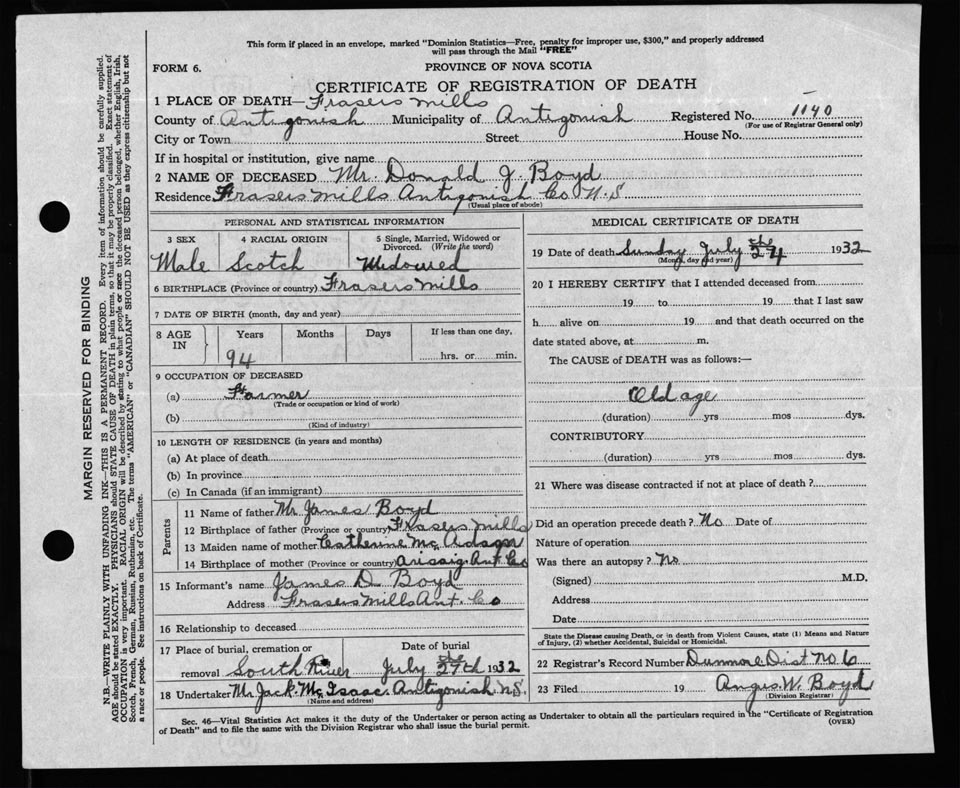 This form if placed in an envelope, marked "Dominion Statistics—Free, penalty for improper use, $300," and properly addressed
will pass through the Mail "FREE"
FORM 6.
PROVINCE OF NOVA SCOTIA
CERTIFICATE OF REGISTRATION OF DEATH
1 PLACE OF DEATH— Frasers Mills
County of Antigonish Municipality of Antigonish Registered No. 1140
(For use of Registrar General only)
City or Town Street House No.
If in hospital or institution, give name
2 NAME OF DECEASED Mr. Donald J. Boyd
Residence Frasers Mills Antigonish Co N.S
(Usual place of abode)
PERSONAL AND STATISTICAL INFORMATION
3 SEX 4 RACIAL ORIGIN 5 Single, Married, Widowed or
Divorced. (Write the word)
Male Scotch Widowed
6 BIRTHPLACE (Province or country) Frasers Mills
7 DATE OF BIRTH (month, day and year)
8 AGE IN Years Months Days If less than one day,
94 hrs. or min.
9 OCCUPATION OF DECEASED
(a) Farmer
(Trade or occupation or kind of work)
(b)
(Kind of industry)
10 LENGTH OF RESIDENCE (in years and months)
(a) At place of death
(b) In province
(c) In Canada (if an immigrant)
Parents
11 Name of father Mr James Boyd
12 Birthplace of father (Province or country) Frasers Mills
13 Maiden name of mother Catherine Mc
14 Birthplace of mother (Province or country) Arisaig Ant Co
15 Informant's name James D Boyd
Address Frasers Mills Ant. Co
16 Relationship to deceased
17 Place of burial, cremation or Date of burial
removal South River July 27th 1932
18 Undertaker Mr Jack Mc Isaac Antigonish N.S.
(Name and address)
MEDICAL CERTIFICATE OF DEATH
19 Date of death Sunday July 24 1932
(Month, day and year)
20 I HEREBY CERTIFY that I attended deceased from
19 to 19 that I last saw
h alive on 19 and that death occurred on the
date stated above, at m.
The CAUSE of DEATH was as follows:—
Old age
(duration) yrs mos dys.
CONTRIBUTORY
(duration) yrs mos dys.
21 Where was disease contracted if not at place of death?
Did an operation precede death? No Date of
Nature of operation
Was there an autopsy? No
(Signed) M.D.
Address
Date
State the Disease causing Death, or in death from Violent Causes, state (1) Means and Nature
of Injury, (2) whether Accidental, Suicidal or Homicidal.
22 Registrar's Record Number Dunmore Dist No. 6
23 Filed 19 Angus W. Boyd
(Division Registrar)
Sec. 46—Vital Statistics Act makes it the duty of the Undertaker or person acting as Undertaker to obtain all the particulars required in the "Certificate of Registration
of Death" and to file the same with the Division Registrar who shall issue the burial permit.
(OVER)
MARGIN RESERVED FOR BINDING
N.B.—WRITE PLAINLY WITH UNFADING INK—THIS IS A PERMANENT RECORD. Every item of information should be carefully supplied.
AGE should be stated EXACTLY. PHYSICIANS should STATE CAUSE OF DEATH in plain terms, so that it may be properly classified. Exact statement of
OCCUPATION is very important. RACIAL ORIGIN will be described by stating to what people or race the deceased person belonged, whether English, Irish,
Scotch, French, German, Russian, Ruthenian, etc. The terms "AMERICAN" or "CANADIAN" SHOULD NOT BE USED as they express citizenship but not
a race or people. See instructions on back of Certificate.